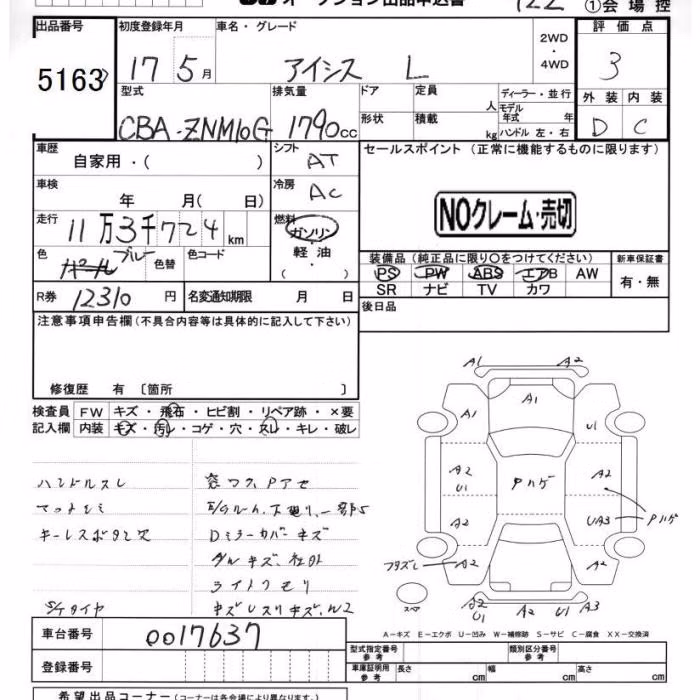 オークション出品申込書
122
①会場控
出品番号
初度登録年月
車名・グレード
評価点
5163
17 5月
アイシス L
2WD
・
4WD
3
型式
排気量
ドア
定員
ディーラー・並行
外装 内装
人
モデル
年式 年
CBA-ZNM10G
1790cc
形状
積載
kg
ハンドル 左・右
D C
車歴
自家用・( )
シフト
AT
セールスポイント (正常に機能するものに限ります)
車検
年 月( 日)
冷房
AC
NOクレーム・売切
走行
11万3千724km
燃料
ガソリン
軽油
( ・ )
色
ブルー
色替
色コード
装備品 (純正品に限り○をつけてください)
新車保証書
PS PW ABS エアB AW
SR ナビ TV カワ
有・無
R券
12310円
名変通知期限 月 日
後日品
注意事項申告欄(不具合内容等は具体的に記入して下さい)
修復歴 有 [箇所 ]
検査員
記入欄
FW キズ・飛石・ヒビ割・リペア跡・×要
内装 キズ・汚レ・コゲ・穴・スレ・キレ・破レ
ハンドルスレ
キーレスボタン穴
Dミラーカバーキズ
ライトクモリ
S/Tタイヤ
A1
A2
A1
U1
A2
U1
Pハゲ
A2
A2
UA3
Pハゲ
A2
A2
スペア
A2
U1
A2
U1
A3
A-キズ E-エクボ U-凹み W-補修跡 S-サビ C-腐食 XX-交換済
車台番号
0017637
登録番号
型式指定番号
参考
類別区分番号
参考
車庫証明用
参考
長さ cm
幅 cm
高さ cm
希望出品コーナー(コーナーは各会場により異なります)